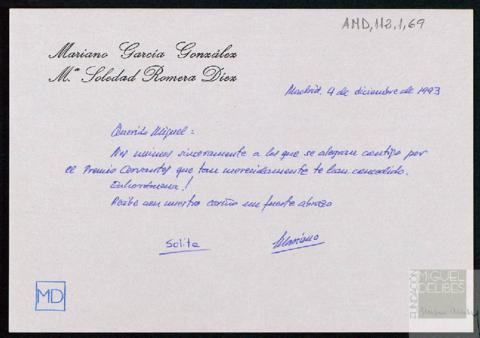 AMD,112,1,69
Mariano García González
M.ª Soledad Romera Díez
Madrid, 9 de diciembre de 1993
Querido Miguel:
Nos unimos sinceramente a los que se alegran contigo por
el Premio Cervantes que tan merecidamente te han concedido.
Enhorabuena!
Recibe con nuestro cariño un fuerte abrazo
Solita Mariano
MD
FUNDACIÓN
MIGUEL
DELIBES